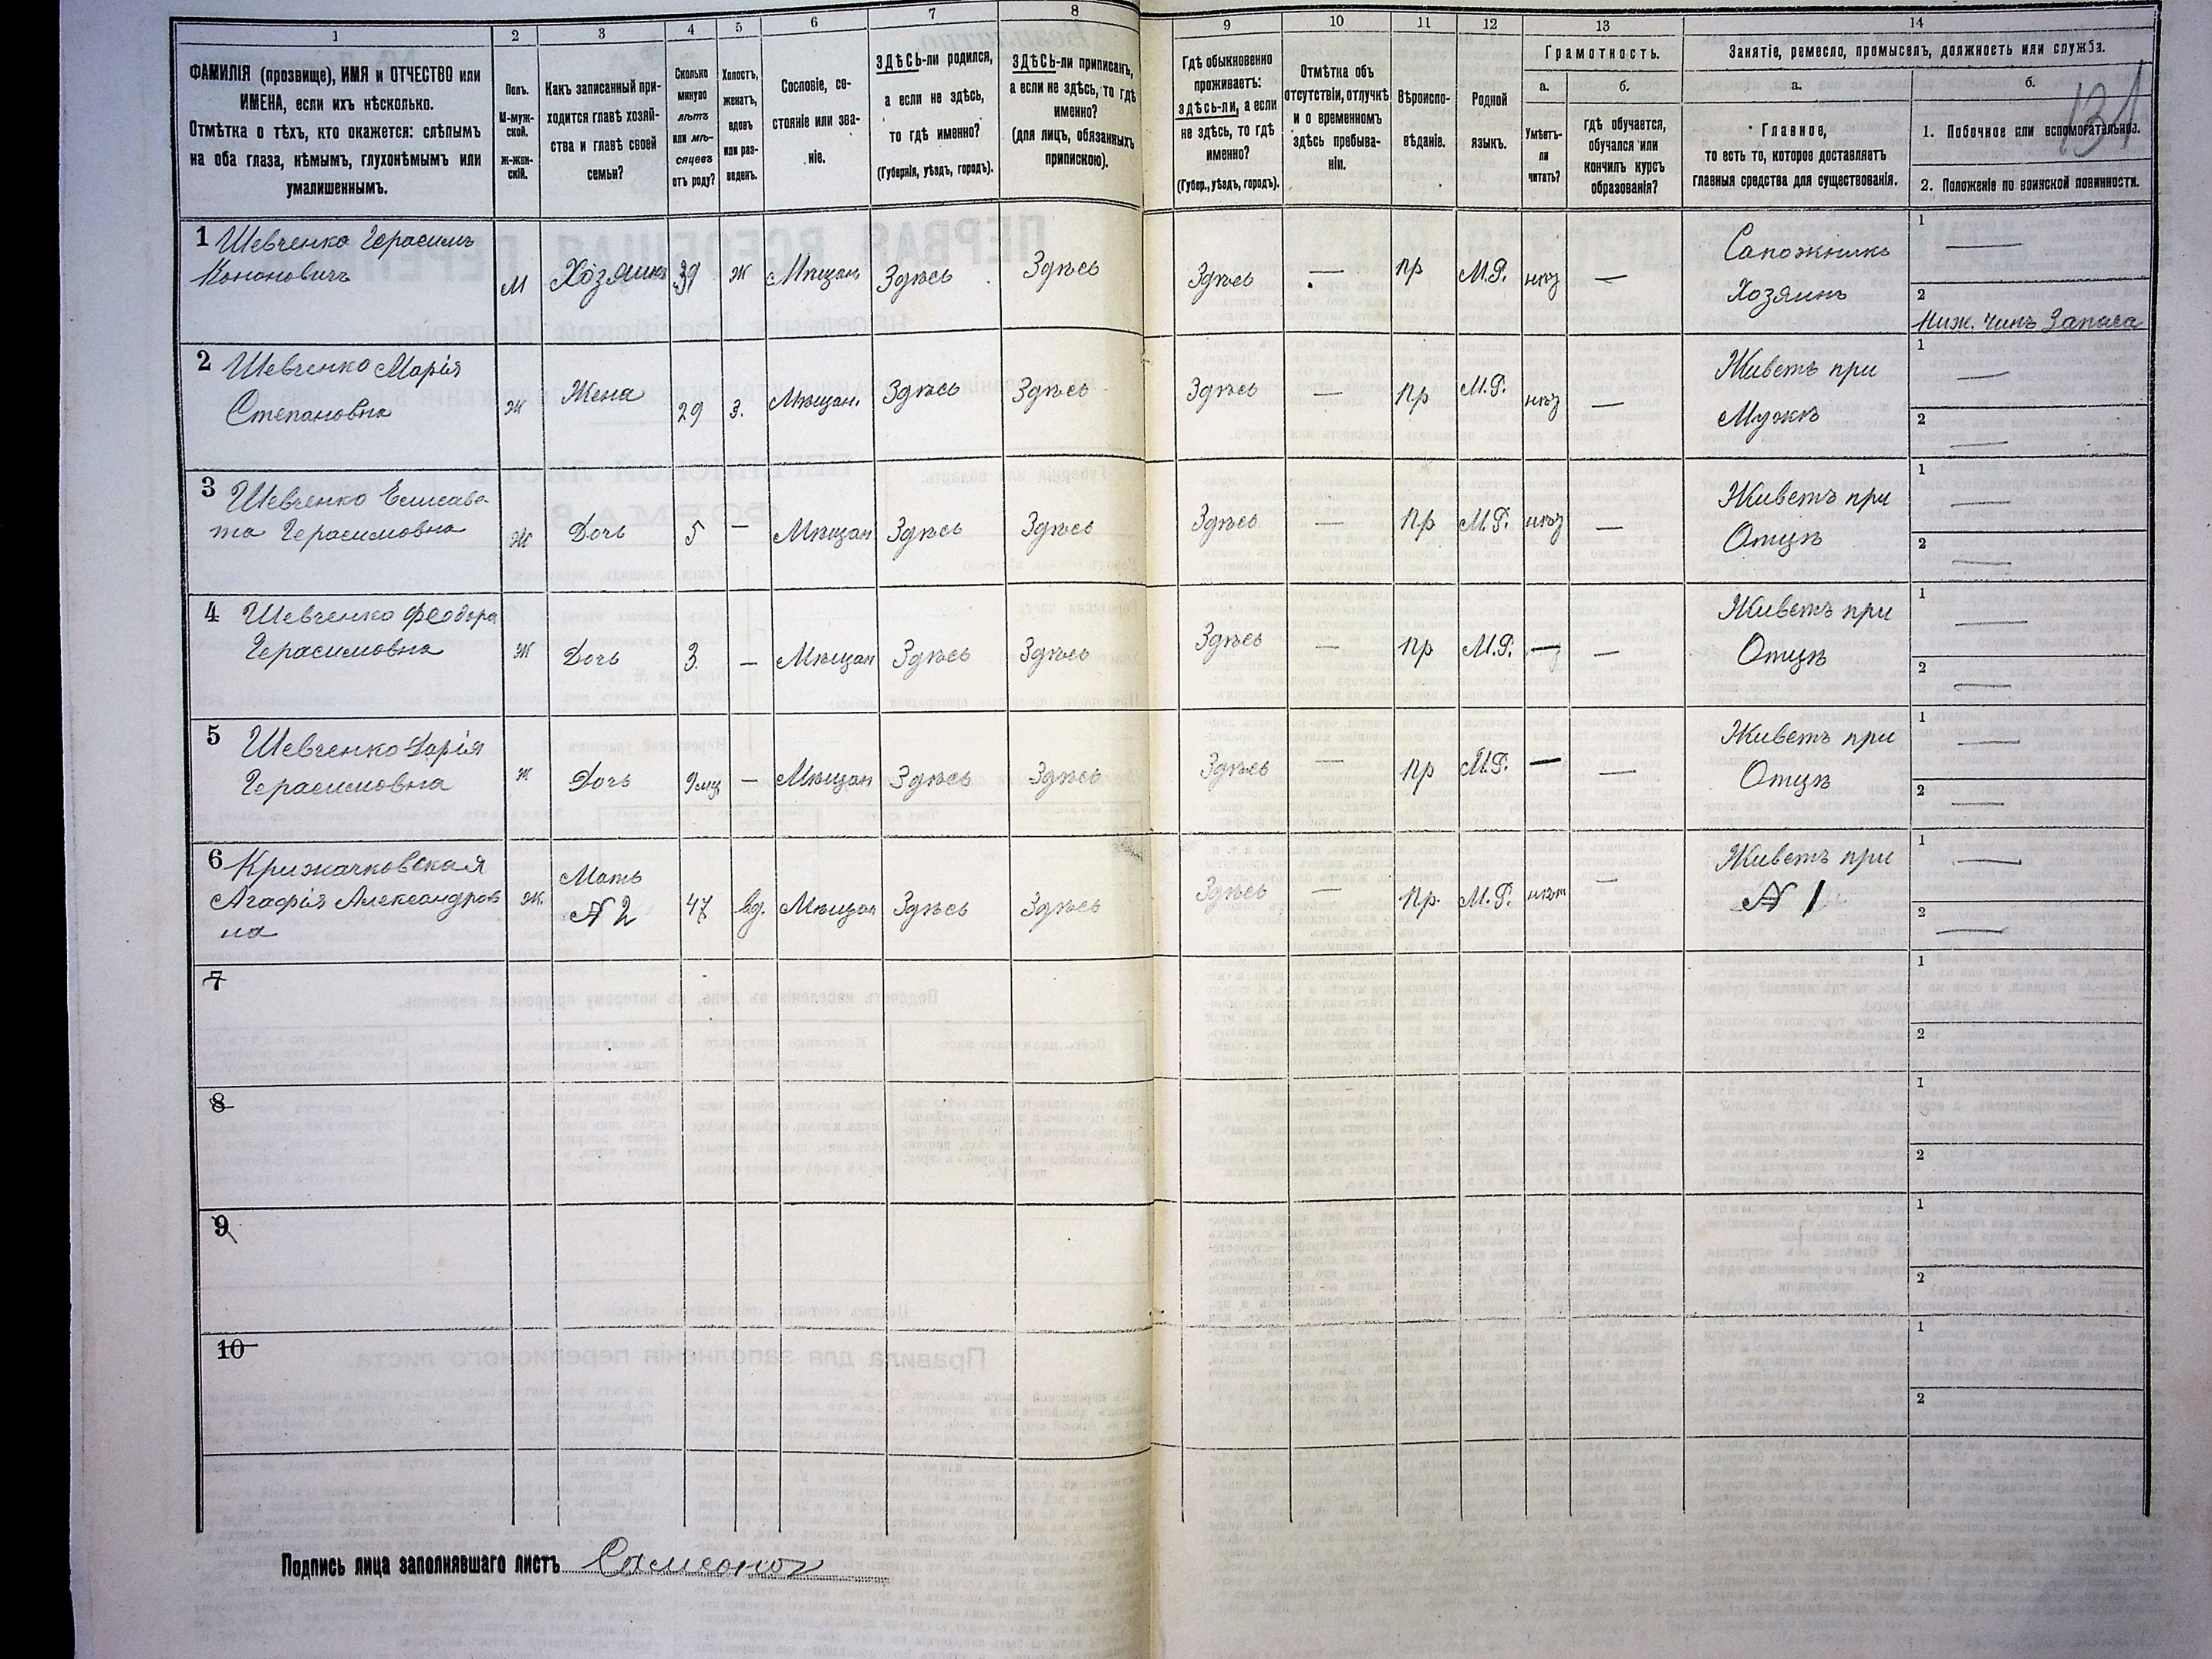 1 2 3 4 5 6 7 8 9 10 11 12 13 14
ФАМИЛІЯ (прозвище), ИМЯ и ОТЧЕСТВО или
ИМЕНА, если ихъ нѣсколько.
Отмѣтка о тѣхъ, кто окажется: слѣпымъ
на оба глаза, нѣмымъ, глухонѣмымъ или
умалишеннымъ.
Полъ.
М-муж-
ской.
Ж-жен-
скій.
Какъ записанный при-
ходится главѣ хозяй-
ства и главѣ своей
семьи?
Сколько
минуло
лѣтъ
или мѣ-
сяцевъ
отъ роду?
Холостъ,
женатъ,
вдовъ
или раз-
веденъ.
Сословіе, со-
стояніе или зва-
ніе.
ЗДѢСЬ-ли родился,
а если не здѣсь,
то гдѣ именно?
(Губернія, уѣздъ, городъ).
ЗДѢСЬ-ли приписанъ,
а если не здѣсь, то гдѣ
именно?
(для лицъ, обязанныхъ
припискою).
Гдѣ обыкновенно
проживаетъ:
здѣсь-ли, а если
не здѣсь, то гдѣ
именно?
(Губер., уѣздъ, городъ).
Отмѣтка объ
отсутствіи, отлучкѣ
и о временномъ
здѣсь пребыва-
ніи.
Вѣроиспо-
вѣданіе.
Родной
языкъ.
Грамотность.
а.
Умѣетъ-
ли
читать?
б.
гдѣ обучается,
обучался или
кончилъ курсъ
образованія?
Занятіе, ремесло, промыселъ, должность или служба.
а.
Главное,
то есть то, которое доставляетъ
главныя средства для существованія.
б.
131
1. Побочное или вспомогательное.
2. Положеніе по воинской повинности.
1 Шевченко Герасимъ
Кононовичъ
М Хозяинъ 39 ж Мѣщан Здѣсь Здѣсь Здѣсь — пр М.Р. нѣт —
Сапожникъ
Хозяинъ
1 —
2
Ниж. чинъ Запаса
2 Шевченко Марія
Степановна
Ж Жена 29 з. Мѣщан. Здѣсь Здѣсь Здѣсь — пр М.Р. нѣт —
Живетъ при
Мужѣ
1 —
2 —
3 Шевченко Елисаве-
та Герасимовна
Ж Дочь 5 — Мѣщан Здѣсь Здѣсь Здѣсь — пр М.Р. нѣт —
Живетъ при
Отцѣ
1 —
2 —
4 Шевченко Феодора
Герасимовна
Ж Дочь 3 — Мѣщан Здѣсь Здѣсь Здѣсь — пр М.Р. — —
Живетъ при
Отцѣ
1 —
2 —
5 Шевченко Дарія
Герасимовна
Ж Дочь 9 мц — Мѣщан Здѣсь Здѣсь Здѣсь — пр М.Р. — —
Живетъ при
Отцѣ
1 —
2 —
6 Крижачковская
Агафія Александров
на
Ж.
Мать
№ 2
47 вд. Мѣщан Здѣсь Здѣсь Здѣсь — Пр. М.Р. нѣт —
Живетъ при
№ 1
1 —
2 —
7
1
2
8
1
2
9
1
2
10
1
2
Подпись лица заполнявшаго листъ